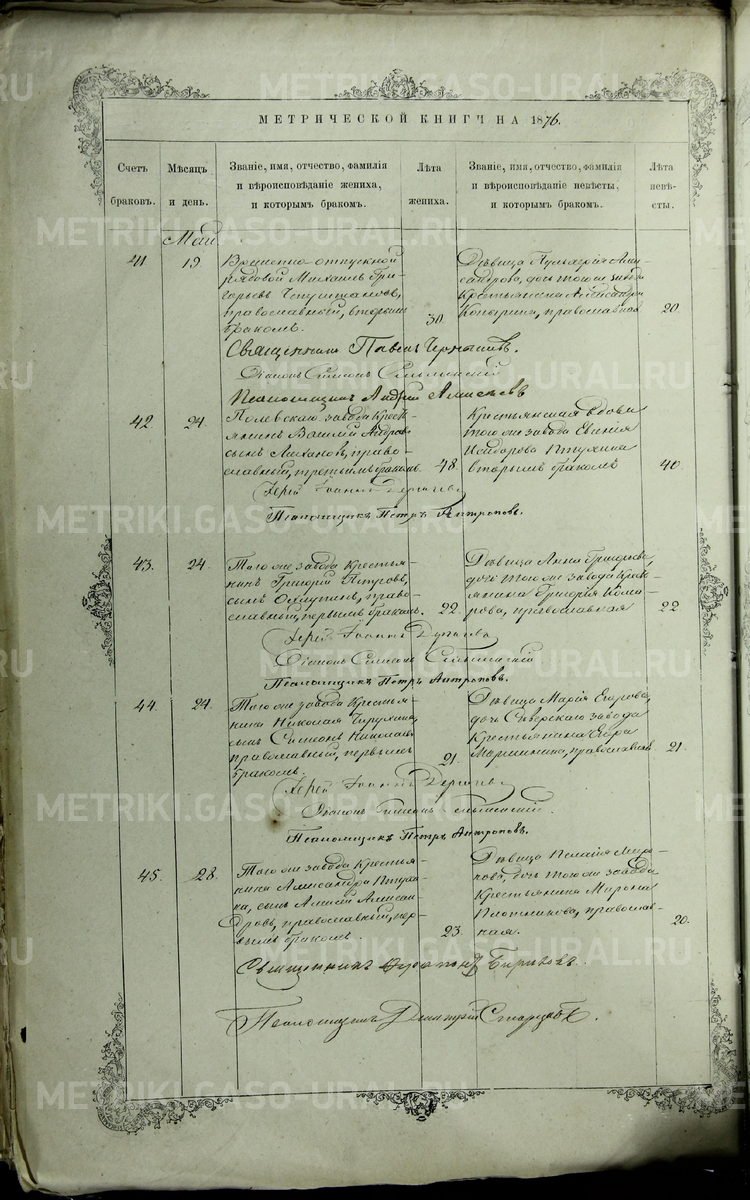 МЕТРИЧЕСКОЙ КНИГИ НА 1876.
Счетъ браковъ.
Мѣсяцъ и день.
Званіе, имя, отчество, фамилія
и вѣроисповѣданіе жениха,
и которымъ бракомъ.
Лѣта
жениха.
Званіе, имя, отчество, фамилія
и вѣроисповѣданіе невѣсты,
и которымъ бракомъ.
Лѣта
невѣ-
сты.
Май
41
19
Временно-отпускной
рядовой Михаилъ Гри-
горьевъ
православный, вторымъ
бракомъ.
30.
Дѣвица Пульхерія Алек-
сандрова, дочь того же завода
крестьянина Александра
православная
20.
Священникъ Павелъ
Діаконъ Симеонъ
Псаломщикъ Андрей Алексѣевъ
42
24.
Полевскаго завода кресть-
янинъ Василій
сынъ право-
славный, третьимъ бракомъ
48.
Крестьянская вдова
того же завода Евгенія
Исидорова
вторымъ бракомъ
40.
Іерей Іоаннъ
Псаломщикъ Петръ Антроповъ.
43.
24.
Того же завода крестья-
нинъ Григорій Петровъ,
сынъ право-
славный, первымъ бракомъ.
22.
Дѣвица Анна Григорьева,
дочь того же завода крест-
янина Григорія Кома-
рова, православная
22
Іерей Іоаннъ
Діаконъ Симеонъ
Псаломщикъ Петръ Антроповъ.
44.
24.
Того же завода крестья-
нина Николая
сынъ Симеонъ Николаевъ
православный, первымъ
бракомъ.
21.
Дѣвица Марія Егорова,
дочь Сѣверскаго завода
крестьянина Егора
православная
21.
Іерей Іоаннъ
Діаконъ Симеонъ
Псаломщикъ Петръ Антроповъ.
45.
28.
Того же завода крестья-
нина Александра
сынъ Алексѣй Алексан-
дровъ, православный, пер-
вымъ бракомъ.
23.
Дѣвица Пелагія Миро-
нова, дочь того же завода
крестьянина Мирона
Плотникова, православ-
ная.
20.
Священникъ
Псаломщикъ Дмитрій
METRIKI.GASO-URAL.RU